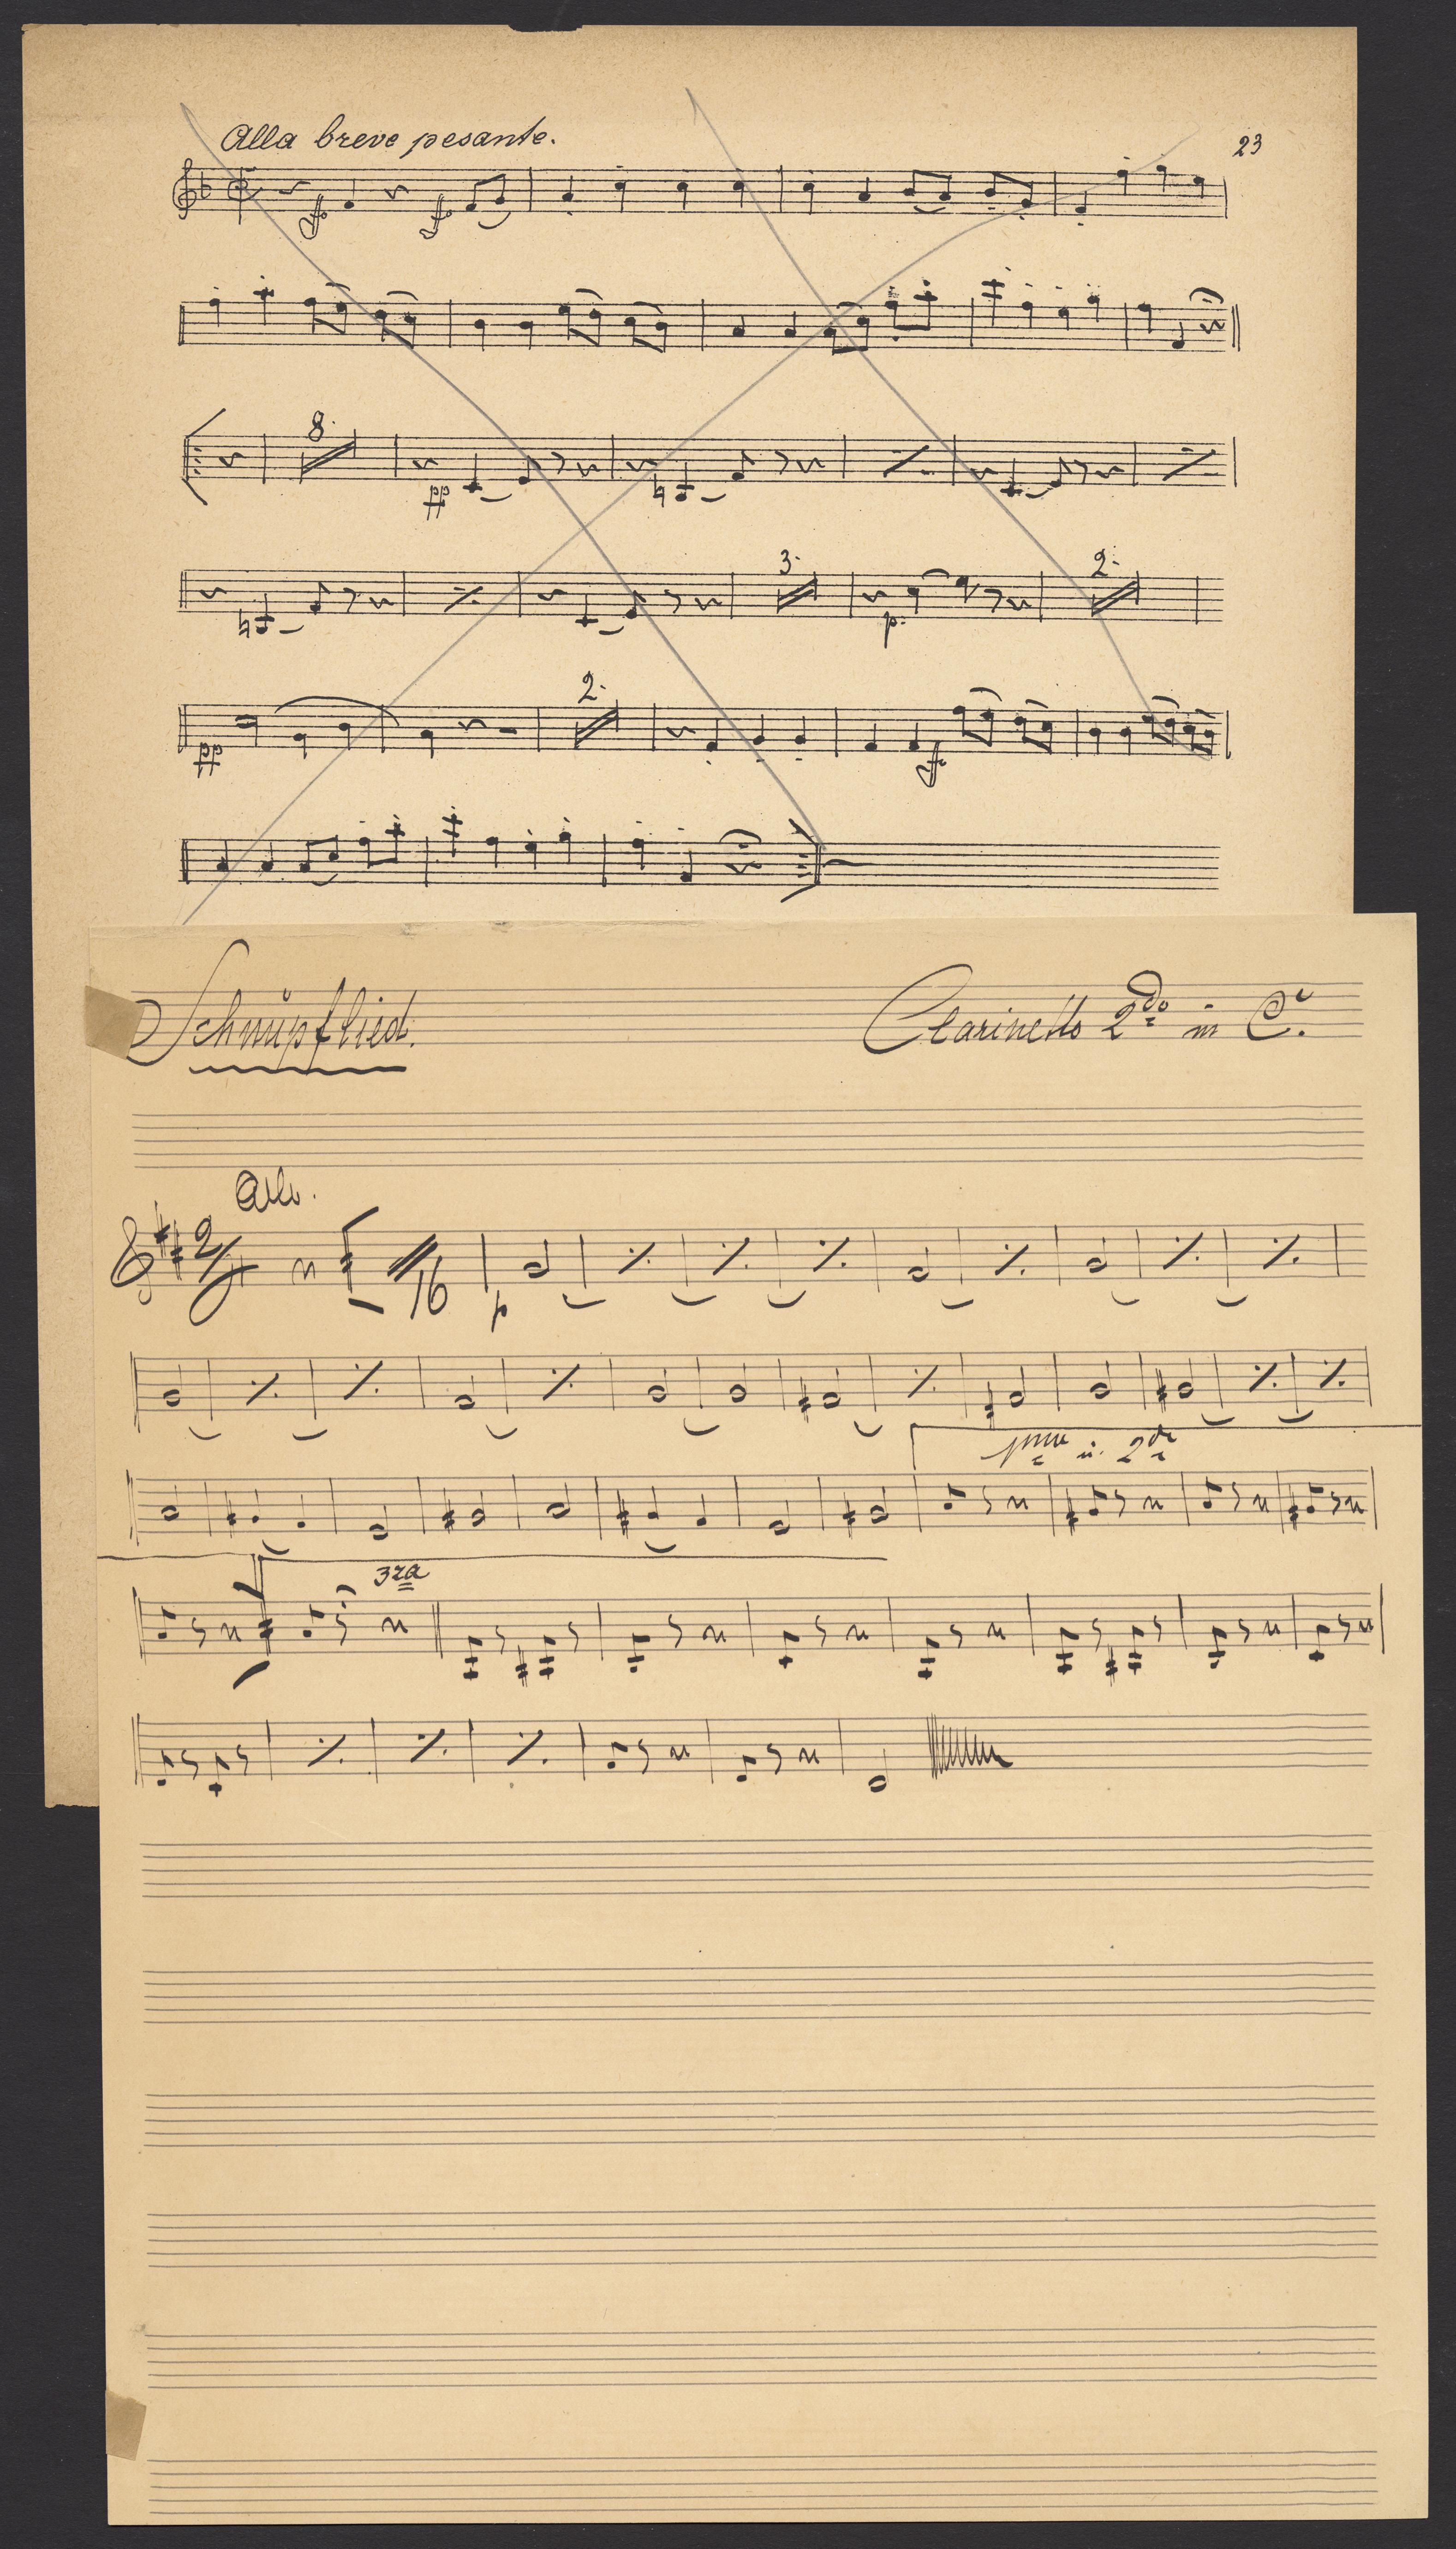 Alla breve pesante.
23
sf sf
8.
pp
3. 2.
p.
2.
pp sf
Schnüpflied. Clarinetto 2do in C.
All.
2/4 16 p
1ma u. 2da
3za